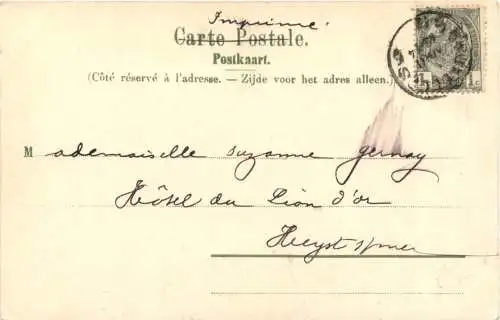 Imprimé
Carte Postale.
Postkaart.
(Côté réservé à l'adresse. — Zijde voor het adres alleen.)
Mademoiselle Suzanne Gernay
Hôtel du Lion d'or
Heyst s/mer
1 1c